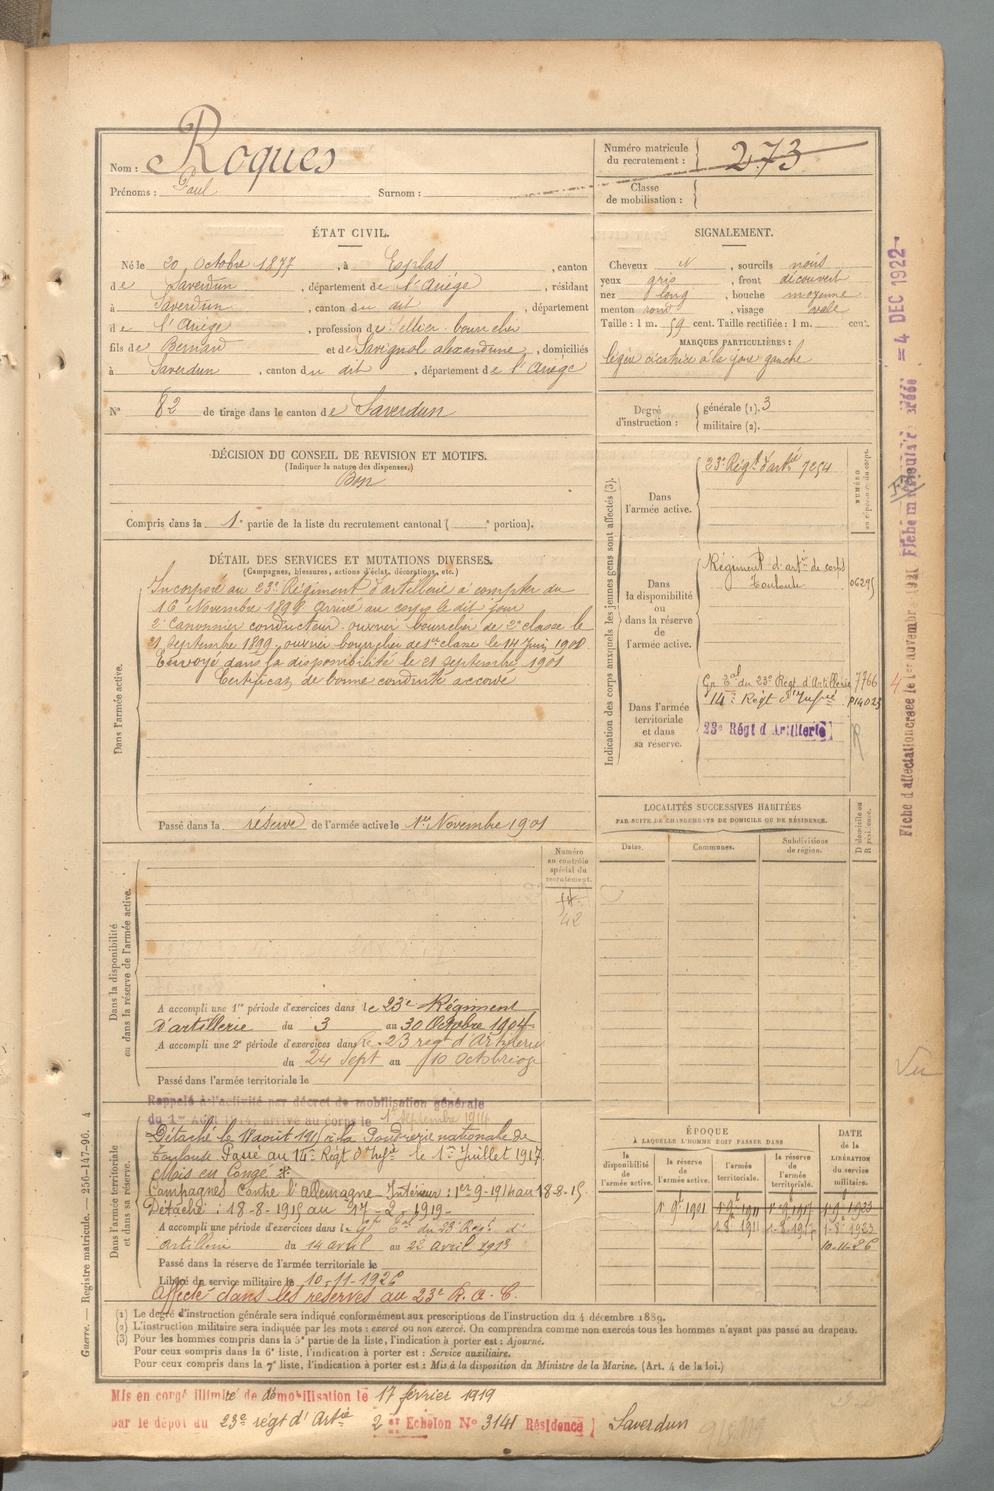 Nom : Roques
Prénoms : Paul Surnom :
Numéro matricule du recrutement : 273
Classe de mobilisation :
ÉTAT CIVIL.
Né le 20 Octobre 1877, à Esplas, canton
de Saverdun, département de l'Ariège, résidant
à Saverdun, canton du dit, département
de l'Ariège, profession de Sellier-bourrelier
fils de Bernard et de Savignol alexandrine, domiciliés
à Saverdun, canton du dit, département de l'Ariège
N° 82 de tirage dans le canton de Saverdun
SIGNALEMENT.
Cheveux N, sourcils noirs
yeux gris, front découvert
nez long, bouche moyenne
menton rond, visage ovale
Taille : 1 m. 59 cent. Taille rectifiée : 1 m. cent.
MARQUES PARTICULIÈRES :
légère cicatrice à la joue gauche
Degré d'instruction : générale (1). 3
militaire (2).
DÉCISION DU CONSEIL DE REVISION ET MOTIFS.
(Indiquer la nature des dispenses.)
Bon
Compris dans la 1e partie de la liste du recrutement cantonal ( e portion).
DÉTAIL DES SERVICES ET MUTATIONS DIVERSES.
(Campagnes, blessures, actions d'éclat, décorations, etc.)
Dans l'armée active.
Incorporé au 23e Régiment d'artillerie à compter du
16 Novembre 1898 arrivé au corps le dit jour
2e Canonnier conducteur. ouvrier bourrelier de 2e classe le
21 Septembre 1899, ouvrier bourrelier de 1re classe le 14 Juin 1900
Envoyé dans la disponibilité le 21 septembre 1901
Certificat de bonne conduite accordé
Passé dans la réserve de l'armée active le 1er Novembre 1901
Indication des corps auxquels les jeunes gens sont affectés (3).
NUMÉRO
Dans l'armée active.
23e Régt d'artie 7254
Dans la disponibilité ou dans la réserve de l'armée active.
Régiment d'artie de corps
Toulouse 06295
Dans l'armée territoriale et dans sa réserve.
Gr. Tal du 23e Régt d'Artillerie 7766
14e Régt d'Infrie P14023
23e Régt d'Artillerie R
LOCALITÉS SUCCESSIVES HABITÉES
PAR SUITE DE CHANGEMENTS DE DOMICILE OU DE RÉSIDENCE.
Dates. Communes. Subdivisions de région.
D domicile ou R résidence.
Dans la disponibilité ou dans la réserve de l'armée active.
Numéro au contrôle spécial du recrutement.
42
A accompli une 1re période d'exercices dans le 23e Régiment
d'artillerie du 3 au 30 Octobre 1904
A accompli une 2e période d'exercices dans le 23 régt d'Artillerie
du 24 Sept au 10 octobre 07
Passé dans l'armée territoriale le
Dans l'armée territoriale et dans sa réserve.
Rappelé à l'activité par décret de mobilisation générale
du 1er Août 1914, arrivé au corps le 1er Septembre 1914
Détaché le 18 août 1915 à la Poudrerie nationale de
Toulouse Passé au 14e Régt d'Infie le 1er Juillet 1917
Mis en Congé *
Campagnes Contre l'Allemagne - Intérieur : 1er-9-1914 au 18-8-15
Détaché : 18-8-1915 au 17-2-1919
A accompli une période d'exercices dans le Gpe Tal du 23e Régt d'
Artillerie du 14 avril au 22 avril 1913
Passé dans la réserve de l'armée territoriale le
Libéré du service militaire le 10-11-1926
Affecté dans les réserves au 23e R. A. C.
ÉPOQUE
À LAQUELLE L'HOMME DOIT PASSER DANS
la disponibilité de l'armée active.
la réserve de l'armée active.
l'armée territoriale.
la réserve de l'armée territoriale.
DATE de la LIBÉRATION du service militaire.
1er 9bre 1901 1er 9bre 1911 1er 9bre 1917 1er 9bre 1923
1-8-1911 1-8-1917 1-8-1923
10-11-26
(1) Le degré d'instruction générale sera indiqué conformément aux prescriptions de l'instruction du 4 décembre 1889.
(2) L'instruction militaire sera indiquée par les mots : exercé ou non exercé. On comprendra comme non exercés tous les hommes n'ayant pas passé au drapeau.
(3) Pour les hommes compris dans la 5e partie de la liste, l'indication à porter est : Ajourné.
Pour ceux compris dans la 6e liste, l'indication à porter est : Service auxiliaire.
Pour ceux compris dans la 7e liste, l'indication à porter est : Mis à la disposition du Ministre de la Marine. (Art. 4 de la loi.)
Mis en congé illimité de démobilisation le 17 février 1919
par le dépôt du 23e régt d'Artie 2e Echelon N° 3141 Résidence } Saverdun
Guerre. — Registre matricule. — 256-147-96. 4
= 4 DEC 1922
Fiche d'affectation créée le 1er novembre 1921
Vu